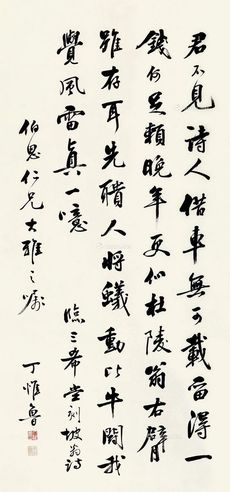 君不見詩人借車無可載留得一
錢何足賴晚年更似杜陵翁右臂
雖存耳先聵人將蟻動作牛鬪我
覺風雷真一噫
臨三希堂刻坡翁詩
伯思仁兄大雅之嘱
丁惟魯